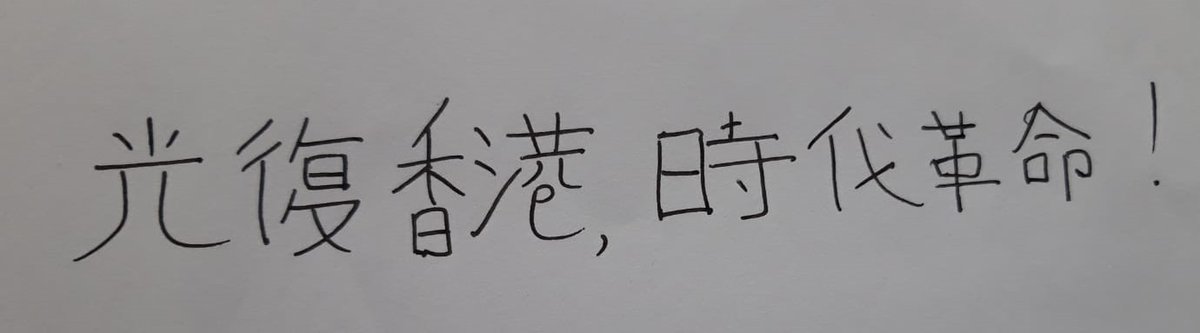 光復香港,時代革命!